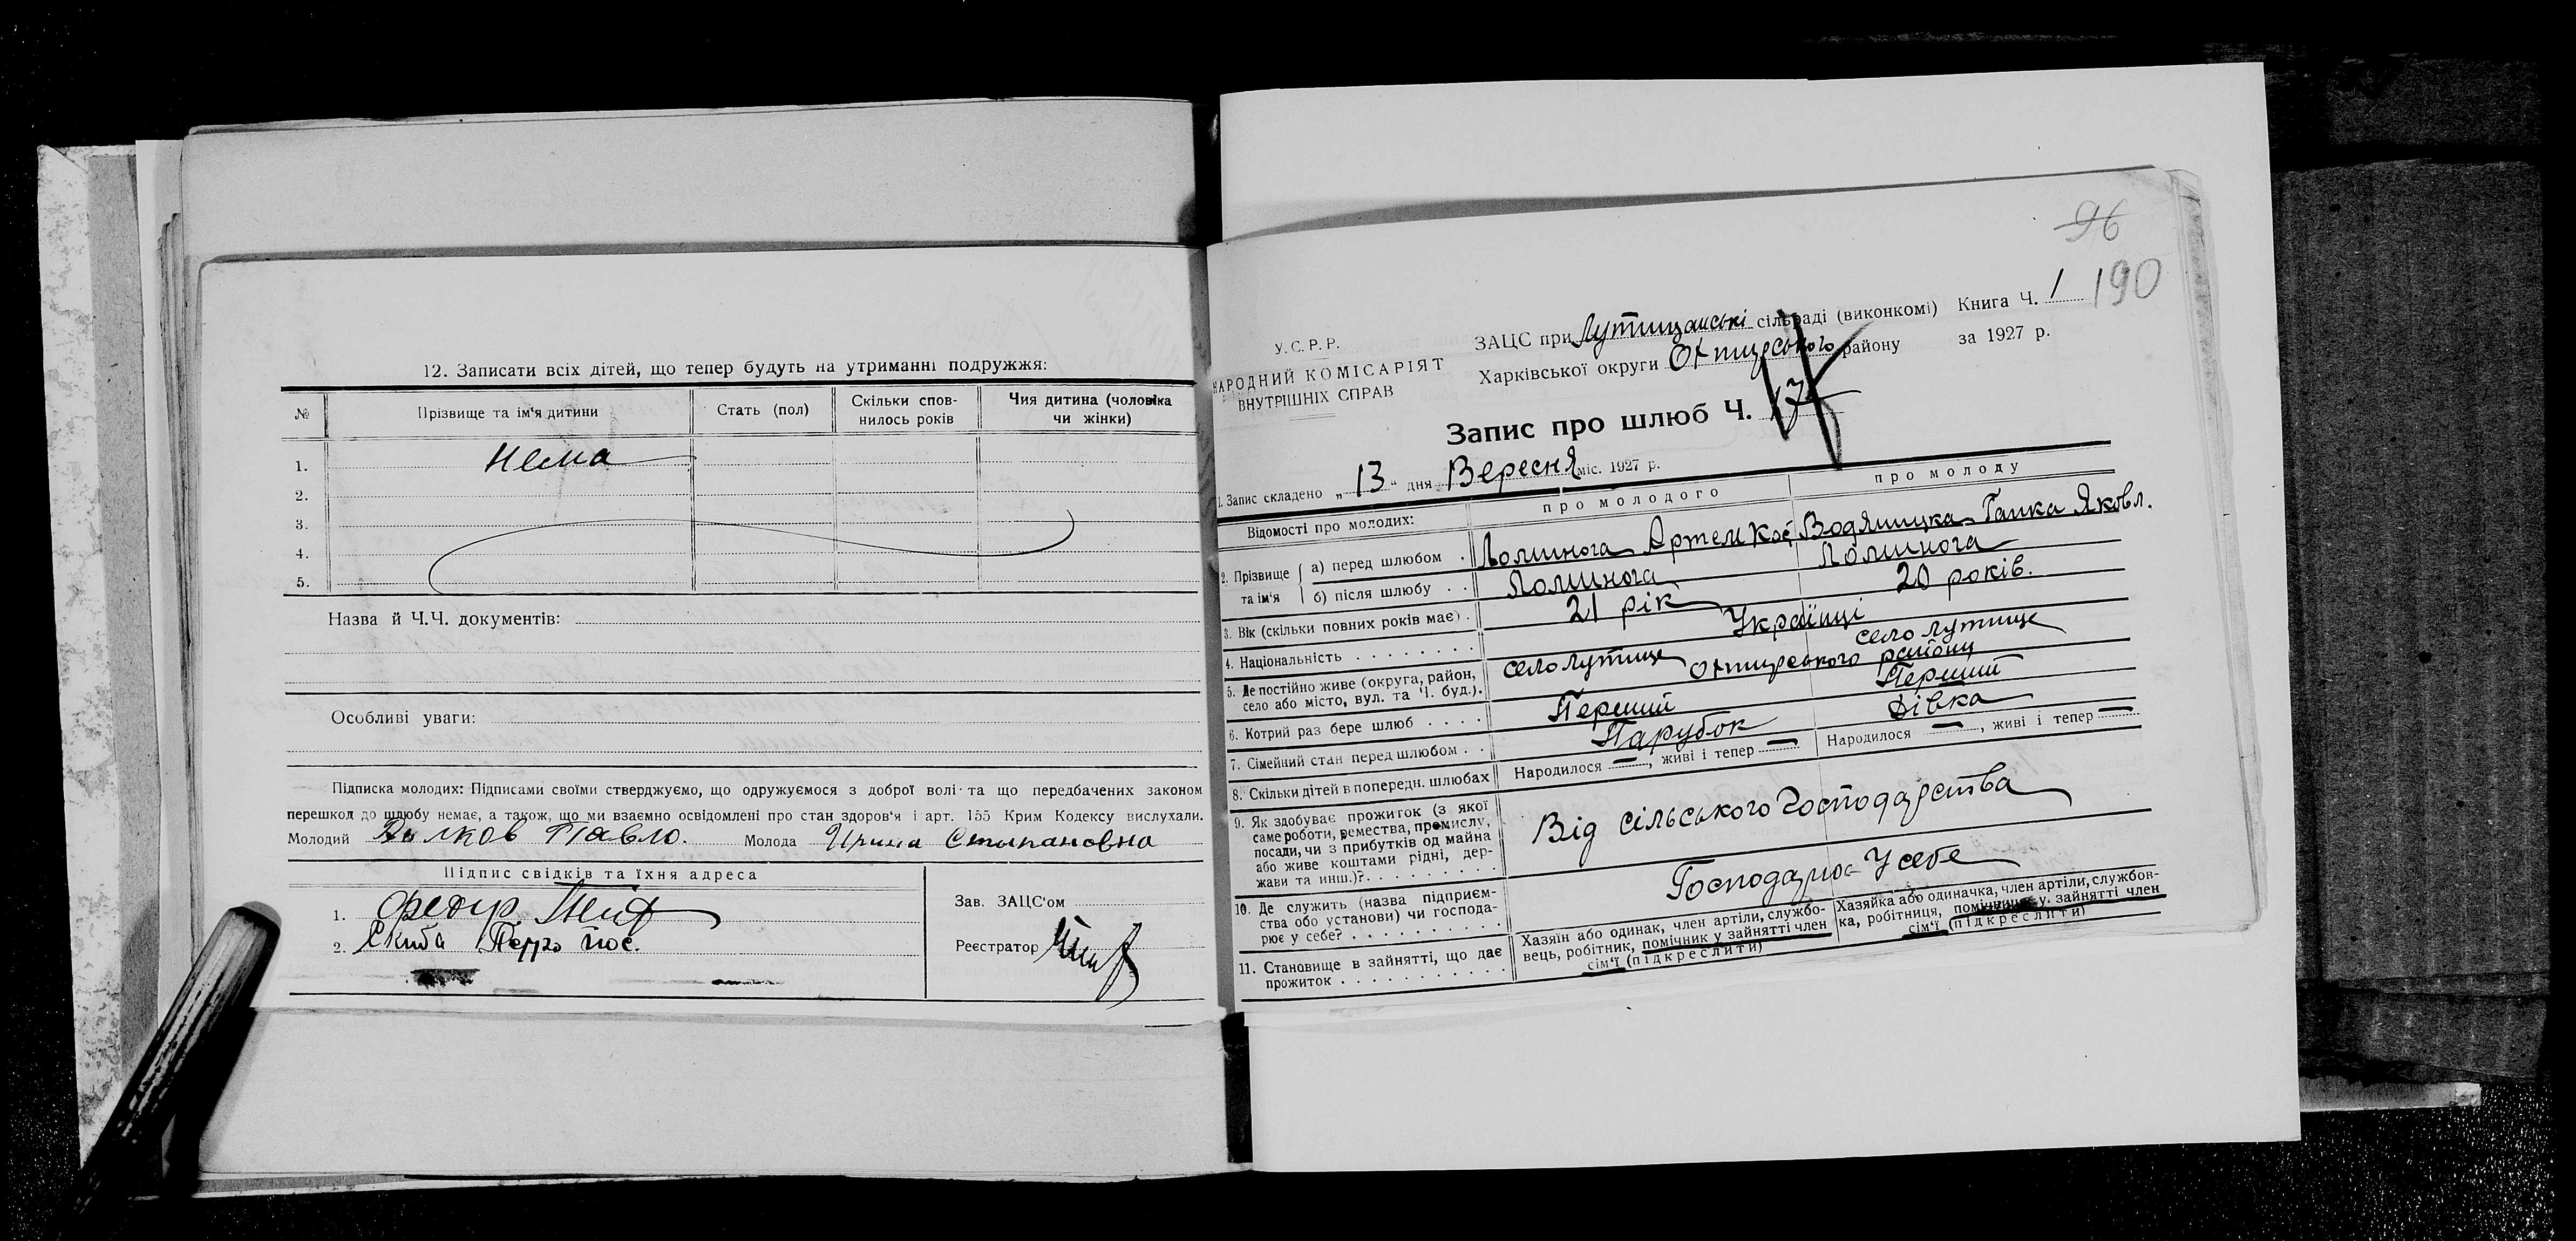 12. Записати всіх дітей, що тепер будуть на утриманні подружжя:
№ Прізвище та ім'я дитини Стать (пол) Скільки спов-нилось років Чия дитина (чоловіка чи жінки)
1. Нема
2.
3.
4.
5.
Назва й Ч.Ч. документів:
Особливі уваги:
Підписка молодих: Підписами своїми стверджуємо, що одружуємося з доброї волі та що передбачених законом
перешкод до шлюбу немає, а також, що ми взаємно освідомлені про стан здоров'я і арт. 155 Крим Кодексу вислухали.
Молодий Павло. Молода Ирина Стыпановна
Підпис свідків та їхня адреса
1. Федир
2. Скиба Петро
Зав. ЗАЦС'ом
Реєстратор
96
190
У.С.Р.Р.
НАРОДНИЙ КОМІСАРІЯТ
ВНУТРІШНІХ СПРАВ
ЗАЦС при Лутищанські сільраді (виконкомі) Книга Ч. 1
Харківської округи Охтирського району за 1927 р.
Запис про шлюб Ч. 17
1. Запис складено „13" дня Вересня міс. 1927 р.
Відомості про молодих: про молодого про молоду
2. Прізвище та ім'я
а) перед шлюбом . Ломинога Артем Кос Водяницка Гапка Яковл.
б) після шлюбу . . Ломинога Ломинога
3. Вік (скільки повних років має) . 21 рік 20 років.
4. Національність . . . . . . . . Українці
5. Де постійно живе (округа, район,
село або місто, вул. та Ч. буд.).
село Лутище село Лутище
Охтирського району
6. Котрий раз бере шлюб . . . . Перший Перший
7. Сімейний стан перед шлюбом . . Парубок Дівка
8. Скільки дітей в попередн. шлюбах Народилося —, живі і тепер — Народилося —, живі і тепер —
9. Як здобуває прожиток (з якої
саме роботи, ремества, промислу,
посади, чи з прибутків од майна
або живе коштами рідні, дер-
жави та инш.)?. . . . . . . . .
Від сільського господарства
10. Де служить (назва підприєм-
ства обо установи) чи господа-
рює у себе? . . . . . . . . . .
Господарює У себе
11. Становище в зайнятті, що дає
прожиток . . . . . . . . . . .
Хазяїн або одинак, член артіли, службо-
вець, робітник, помічник у зайнятті член
сім'ї (підкреслити)
Хазяйка або одиначка, член артіли, службов-
ка, робітниця, помічниця у. зайнятті член
сім'ї (підкреслити)